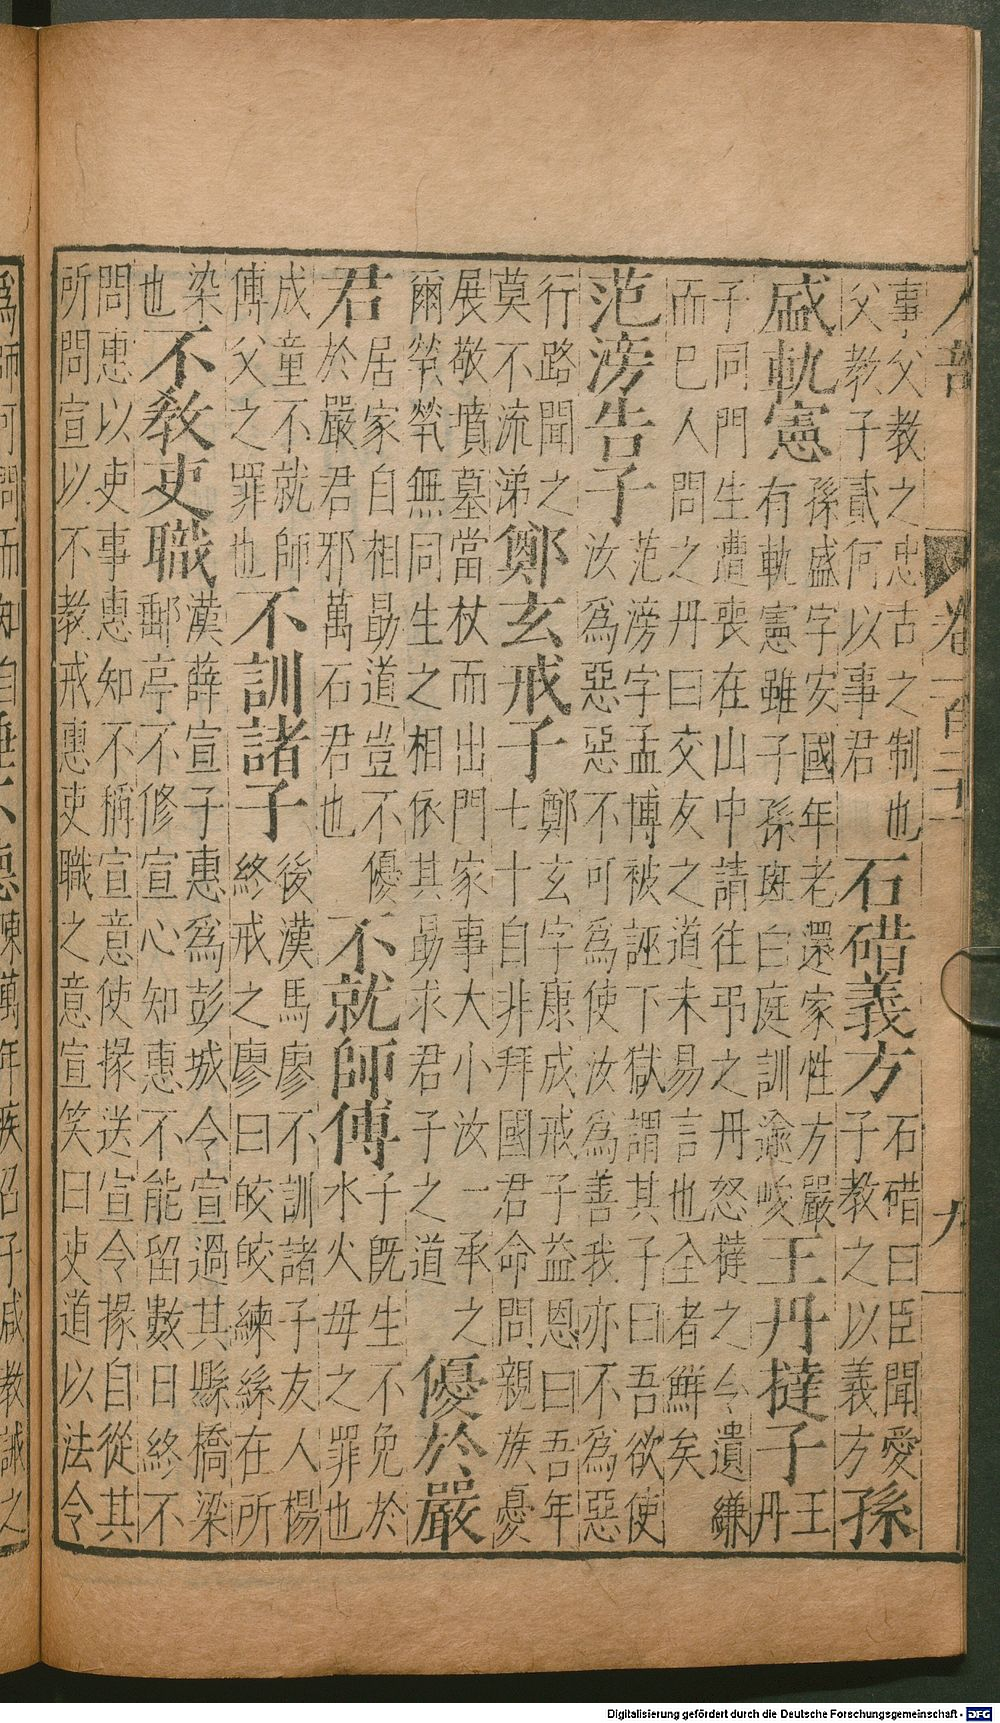 人部
九
事父教之忠古之制也
父教子貳何以事君
石碏義方
石碏曰臣聞愛
子教之以義方
孫
盛軌憲
孫盛字安國年老還家性方嚴
有軌憲雖子孫斑白庭訓逾峻
王丹撻子
王
丹
子同門生遭喪在山中請往弔之丹怒撻之令遺縑
而已人問之丹曰交友之道未易言也全者鮮矣
范滂告子
范滂字孟博被誣下獄謂其子曰吾欲使
汝爲惡惡不可爲使汝爲善我亦不爲惡
行路聞之
莫不流涕
鄭玄戒子
鄭玄字康成戒子益恩曰吾年
七十自非拜國君命問親族憂
展敬墳墓當杖而出門家事大小汝一承之
爾煢煢無同生之相依其勗求君子之道
優於嚴
君
居家自相勗道豈不優
於嚴君邪萬石君也
不就師傅
子既生不免於
水火母之罪也
成童不就師
傅父之罪也
不訓諸子
後漢馬廖不訓諸子友人楊
終戒之廖曰皎皎練絲在所
染
也
不教吏職
漢薛宣子惠爲彭城令宣過其縣橋梁
郵亭不修宣心知惠不能留數日終不
問惠以吏事惠知不稱宣意使掾送宣令掾自從其
所問宣以不教戒惠吏職之意宣笑曰吏道以法令
爲師可問而知自
陳萬年疾召子咸教誡之
Digitalisierung gefördert durch die Deutsche Forschungsgemeinschaft - DFG